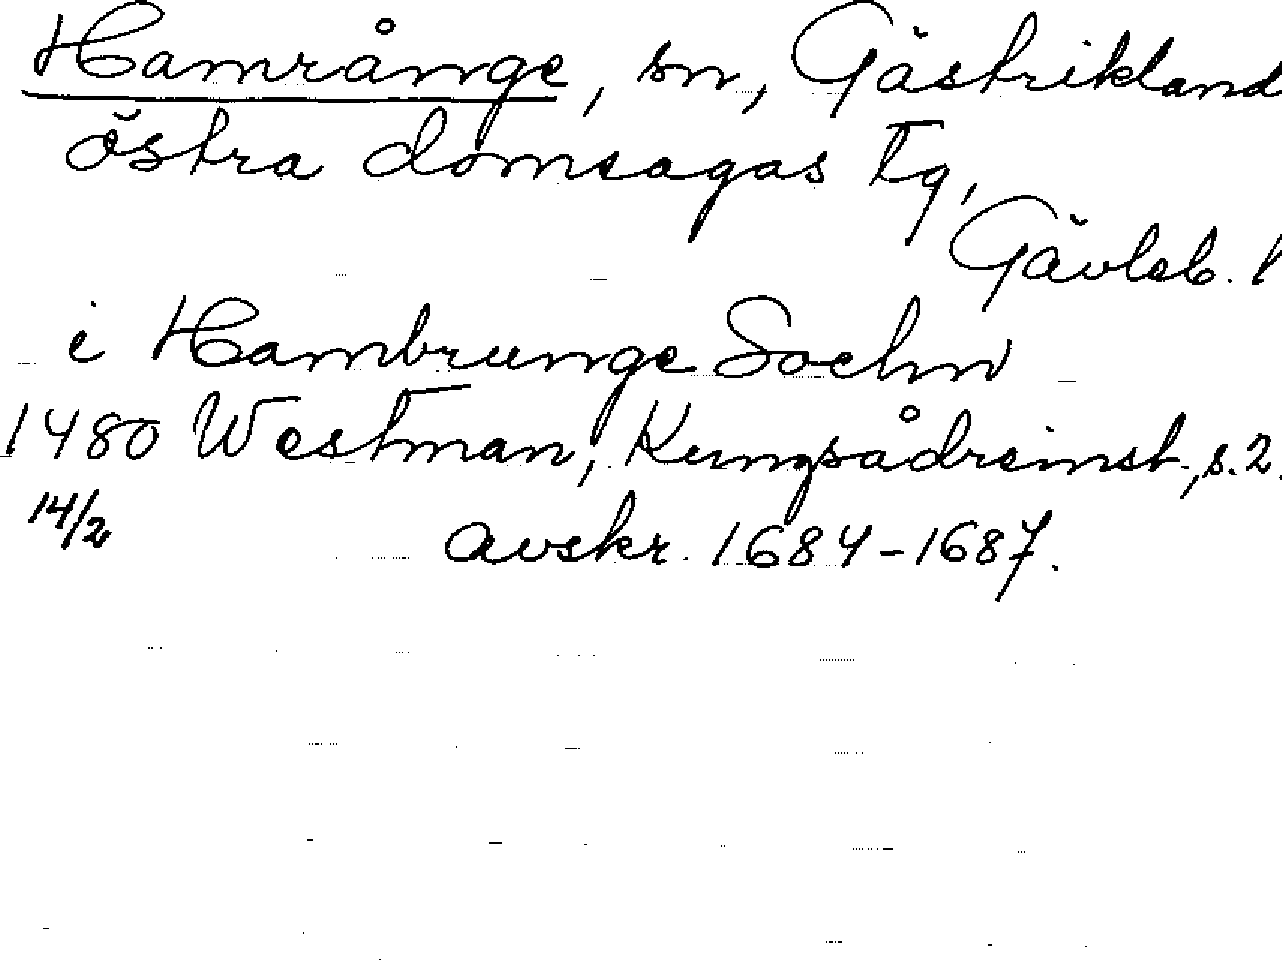 Hamrånge, sn, Gästrikland
östra domsagas tg,
Gävleb. l
i Hambrunge Sochn
1480 Westman, Kungsådreinst., s. 2.
14/2 avskr. 1684-1687.